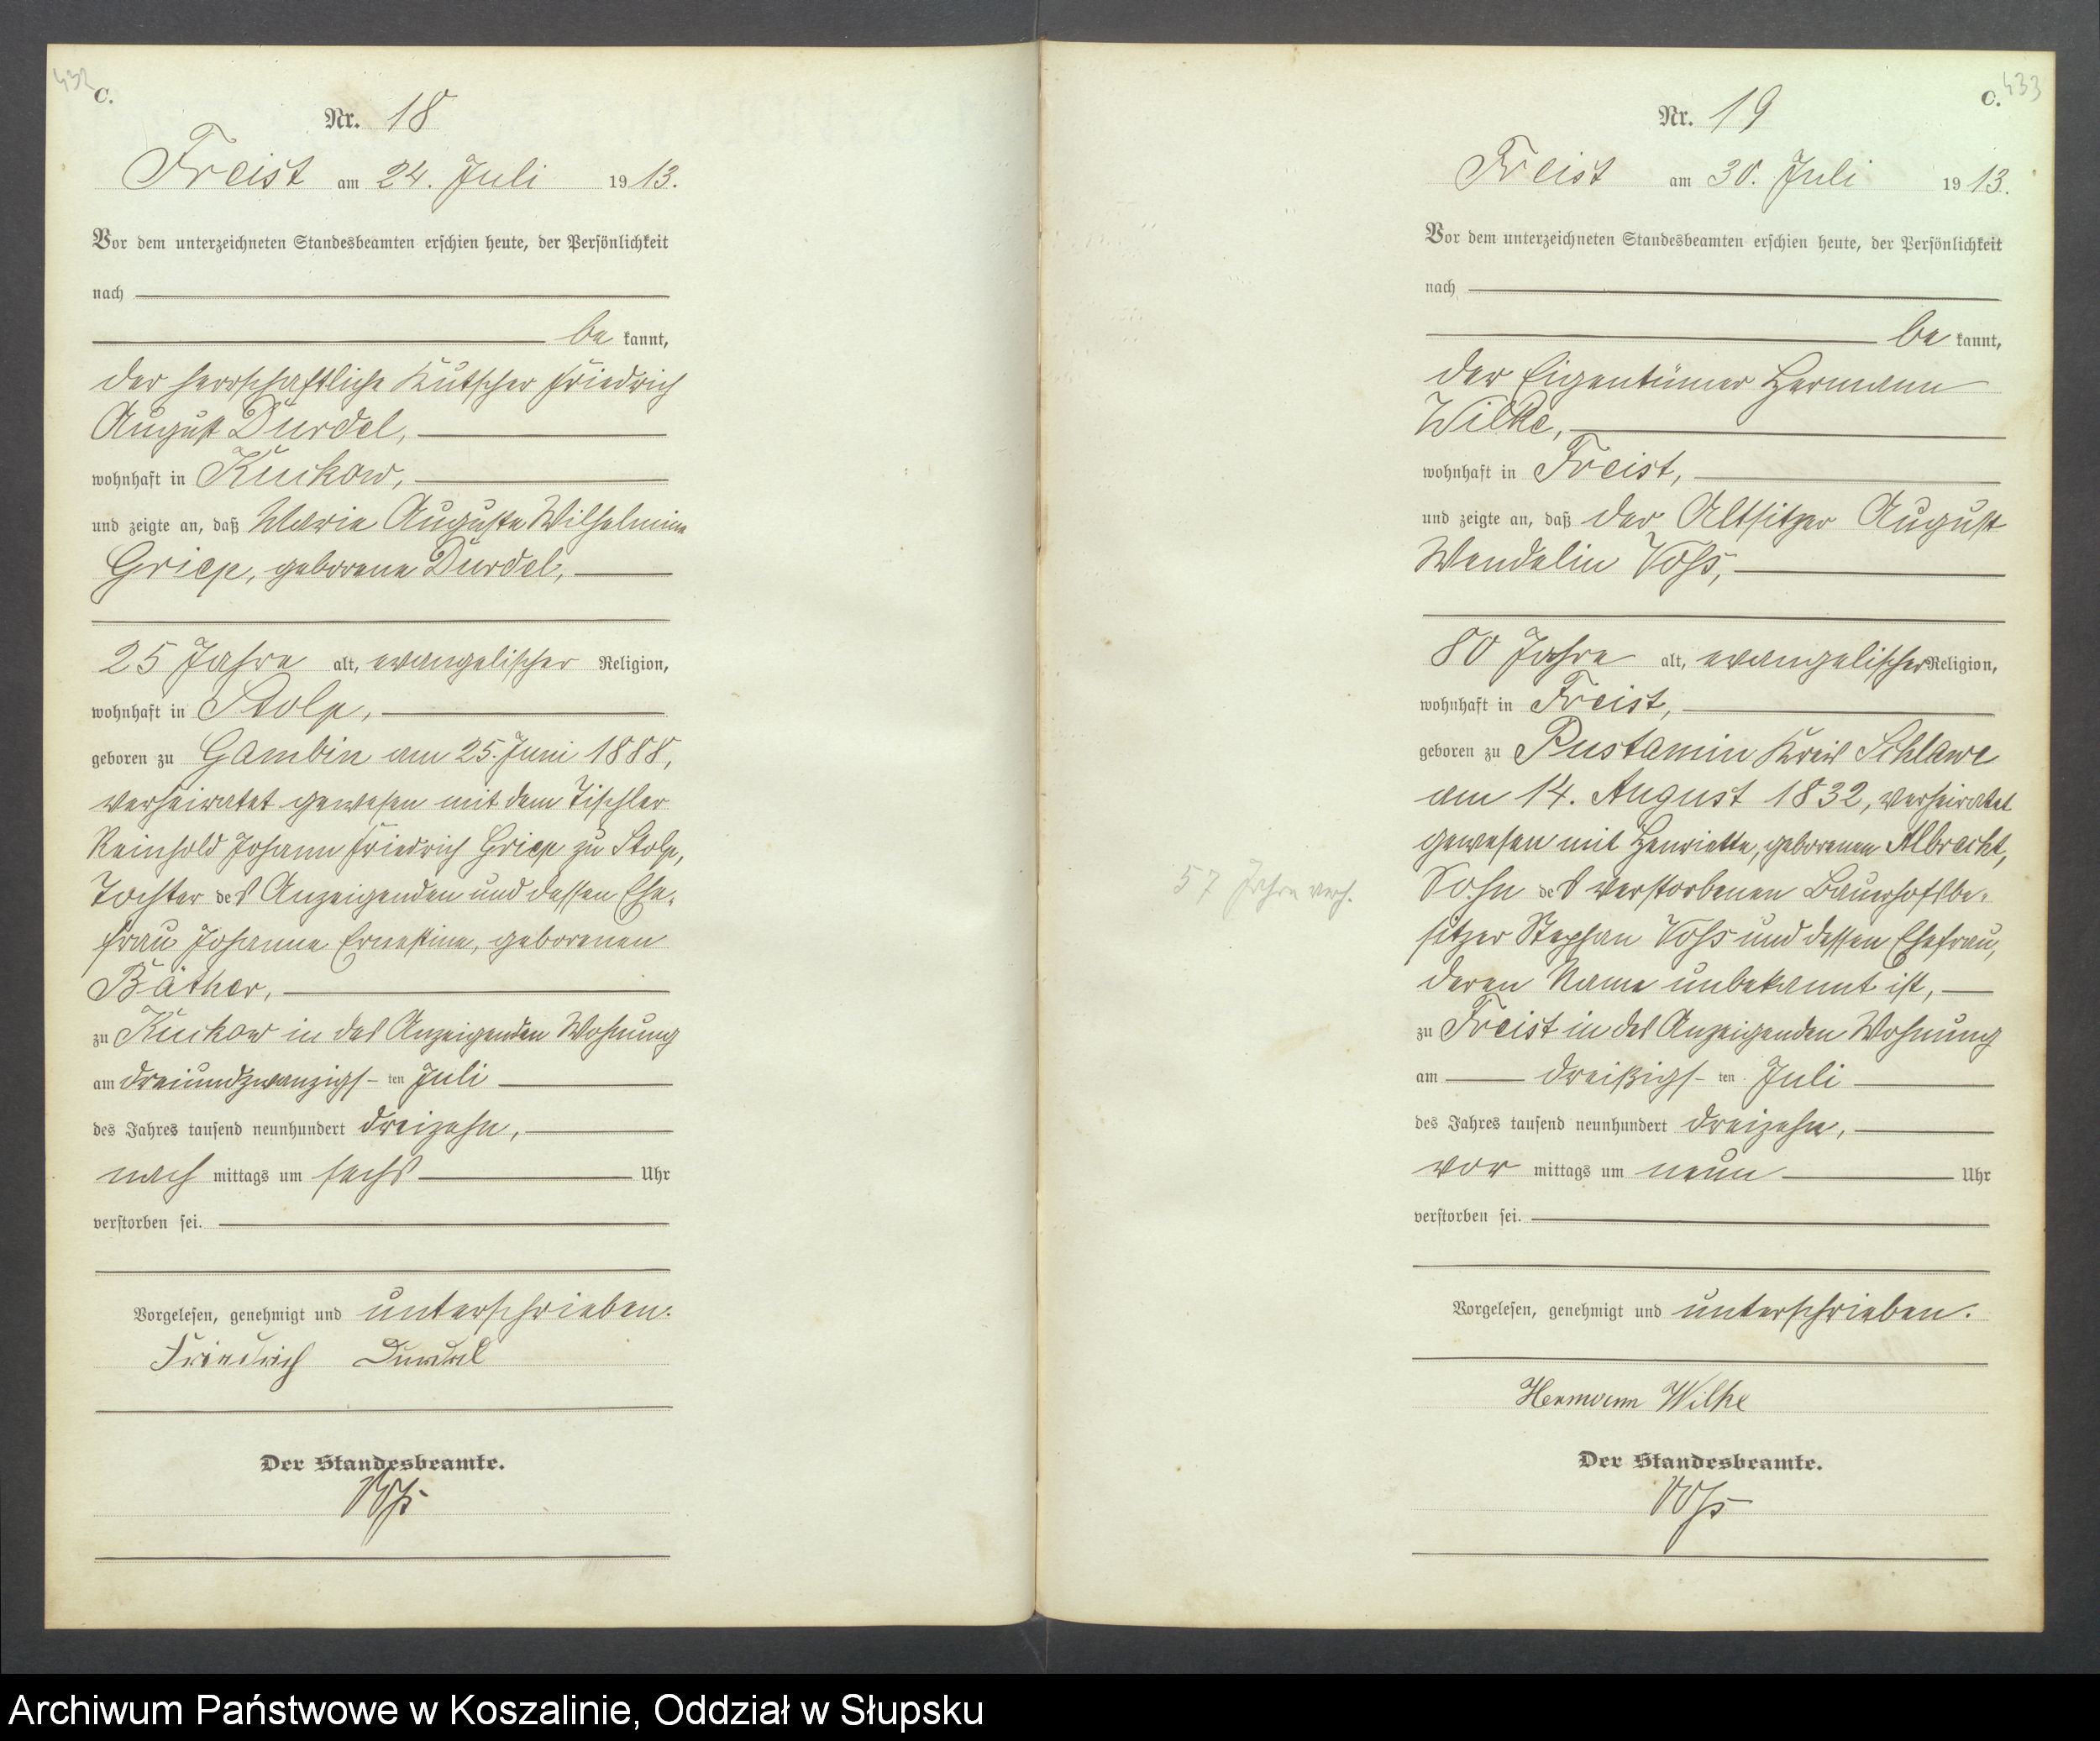 432
C.
Nr. 18
Freist am 24. Juli 1913.
Vor dem unterzeichneten Standesbeamten erschien heute, der Persönlichkeit
nach
be kannt,
der herrschaftliche Kutscher Friedrich
August Durdel,
wohnhaft in Kuckow,
und zeigte an, daß Marie Auguste Wilhelmine
Griep, geborene Durdel,
25 Jahre alt, evangelischer Religion,
wohnhaft in Stolp,
geboren zu Gambin am 25. Juni 1888,
verheiratet gewesen mit dem Tischler
Reinhold Johann Friedrich Griep zu Stolp,
Tochter des Anzeigenden und dessen Ehe-
frau Johanne Ernestine, geborenen
Bäther,
zu Kuckow in des Anzeigenden Wohnung
am dreiundzwanzigs- ten Juli
des Jahres tausend neunhundert dreizehn,
nach mittags um sechs Uhr
verstorben sei.
Vorgelesen, genehmigt und unterschrieben.
Friedrich Durdel
Der Standesbeamte.
Voß
433
C.
Nr. 19
Freist am 30. Juli 1913.
Vor dem unterzeichneten Standesbeamten erschien heute, der Persönlichkeit
nach
be kannt,
der Eigentümer Hermann
Wilke,
wohnhaft in Freist,
und zeigte an, daß der Altsitzer August
Wendelin Voß,
80 Jahre alt, evangelischer Religion,
wohnhaft in Freist,
geboren zu Pustamin Kreis Schlawe
am 14. August 1832, verheiratet
gewesen mit Henriette, geborenen Albrecht,
57 Jahre verh.
Sohn des verstorbenen Bauerhofsbe-
sitzer Stephan Voß und dessen Ehefrau,
deren Name unbekannt ist,
zu Freist in des Anzeigenden Wohnung
am dreißigs- ten Juli
des Jahres tausend neunhundert dreizehn,
vor mittags um neun Uhr
verstorben sei.
Vorgelesen, genehmigt und unterschrieben.
Hermann Wilke
Der Standesbeamte.
Voß
Archiwum Państwowe w Koszalinie, Oddział w Słupsku